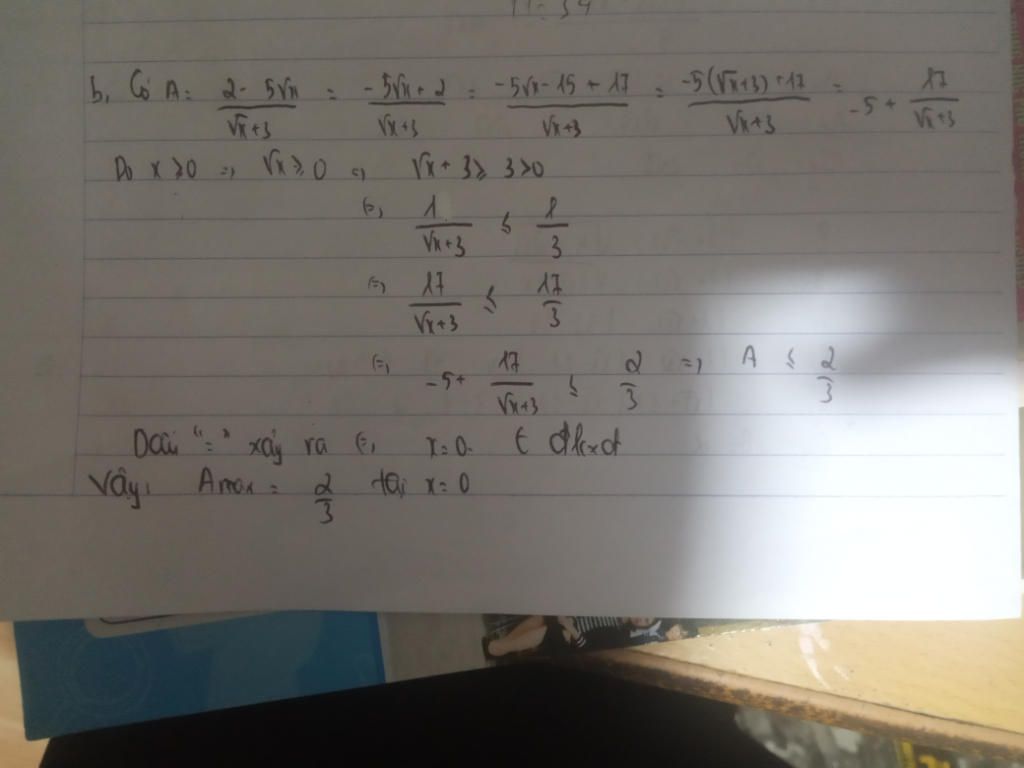 b, Có A = \frac{2 - 5\sqrt{x}}{\sqrt{x}+3} = \frac{-5\sqrt{x}+2}{\sqrt{x}+3} = \frac{-5\sqrt{x}-15+17}{\sqrt{x}+3} = \frac{-5(\sqrt{x}+3)+17}{\sqrt{x}+3} = -5 + \frac{17}{\sqrt{x}+3}
Do x ≥ 0 => √x ≥ 0 => √x + 3 ≥ 3 > 0
(=) \frac{1}{\sqrt{x}+3} ≤ \frac{1}{3}
(=) \frac{17}{\sqrt{x}+3} ≤ \frac{17}{3}
(=) -5 + \frac{17}{\sqrt{x}+3} ≤ \frac{2}{3} => A ≤ \frac{2}{3}
Dấu "=" xảy ra (=) x = 0 t đkxđ
Vậy: Amax = \frac{2}{3} tại x = 0